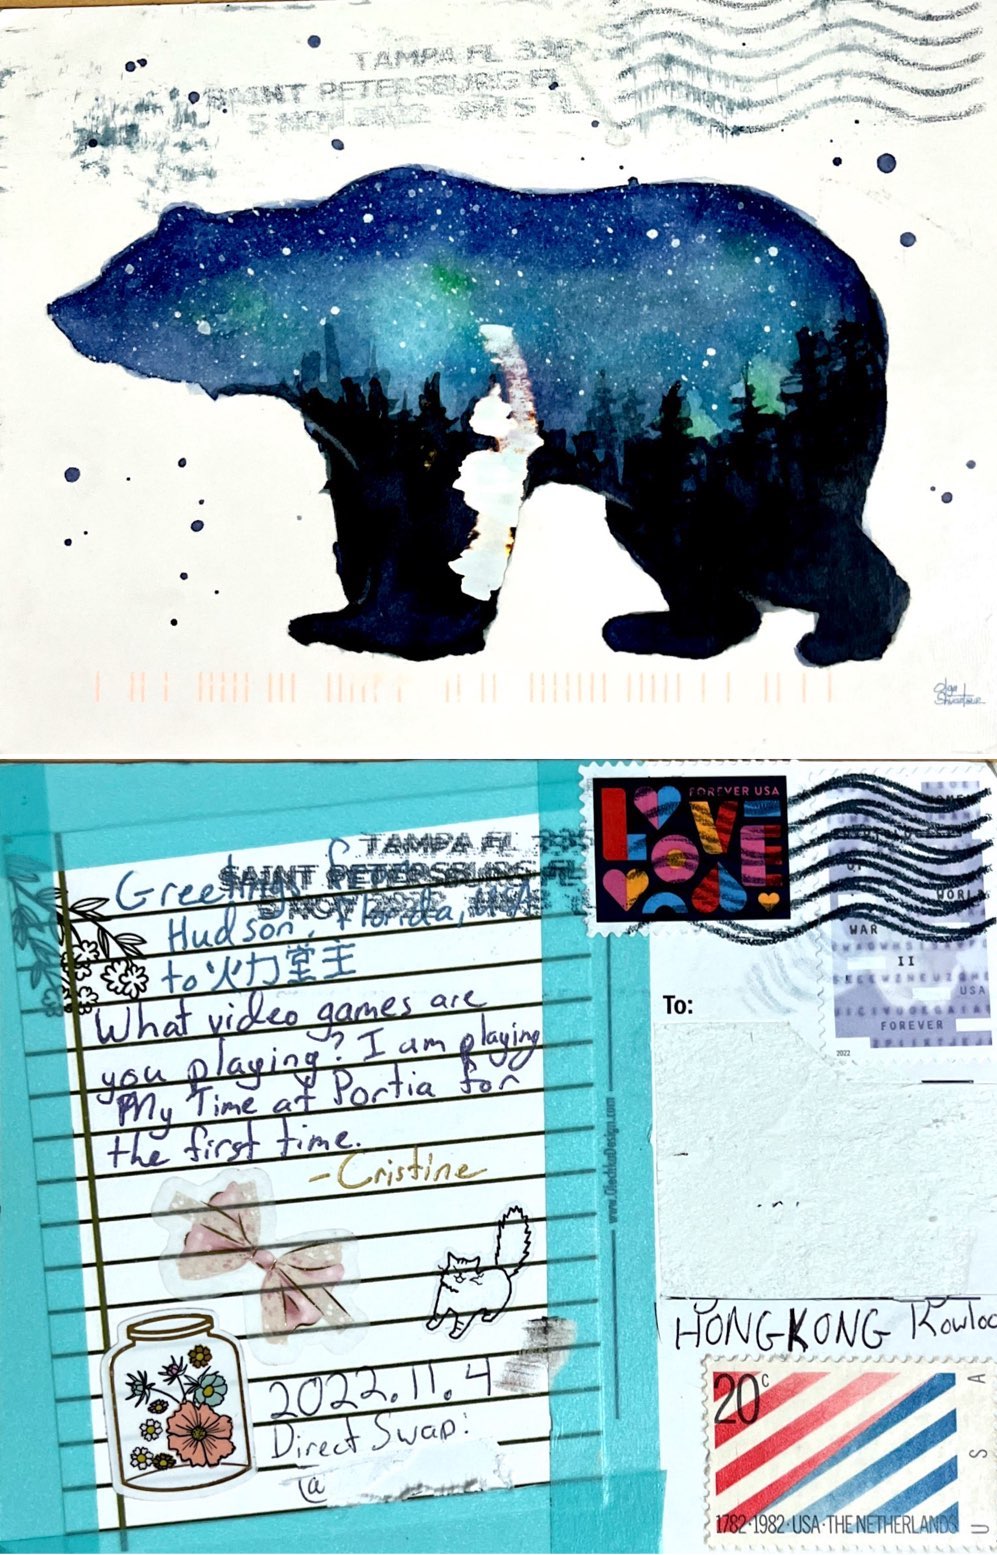 TAMPA FL 335
SAINT PETERSBURG FL
5 NOV 2022
Olga
Shvartsur
TAMPA FL 335
SAINT PETERSBURG FL
5 NOV 2022
Greetings from
Hudson, Florida, USA
to 火力堂主
What video games are
you playing? I am playing
My Time at Portia for
the first time.
-Cristine
2022.11.4
Direct Swap:
@
www.OlechkaDesign.com
FOREVER USA
LOVE
WOMEN
WORLD
WAR
II
USA
FOREVER
2022
To:
HONGKONG Kowloo
20c
USA
1782·1982·USA·THE NETHERLANDS